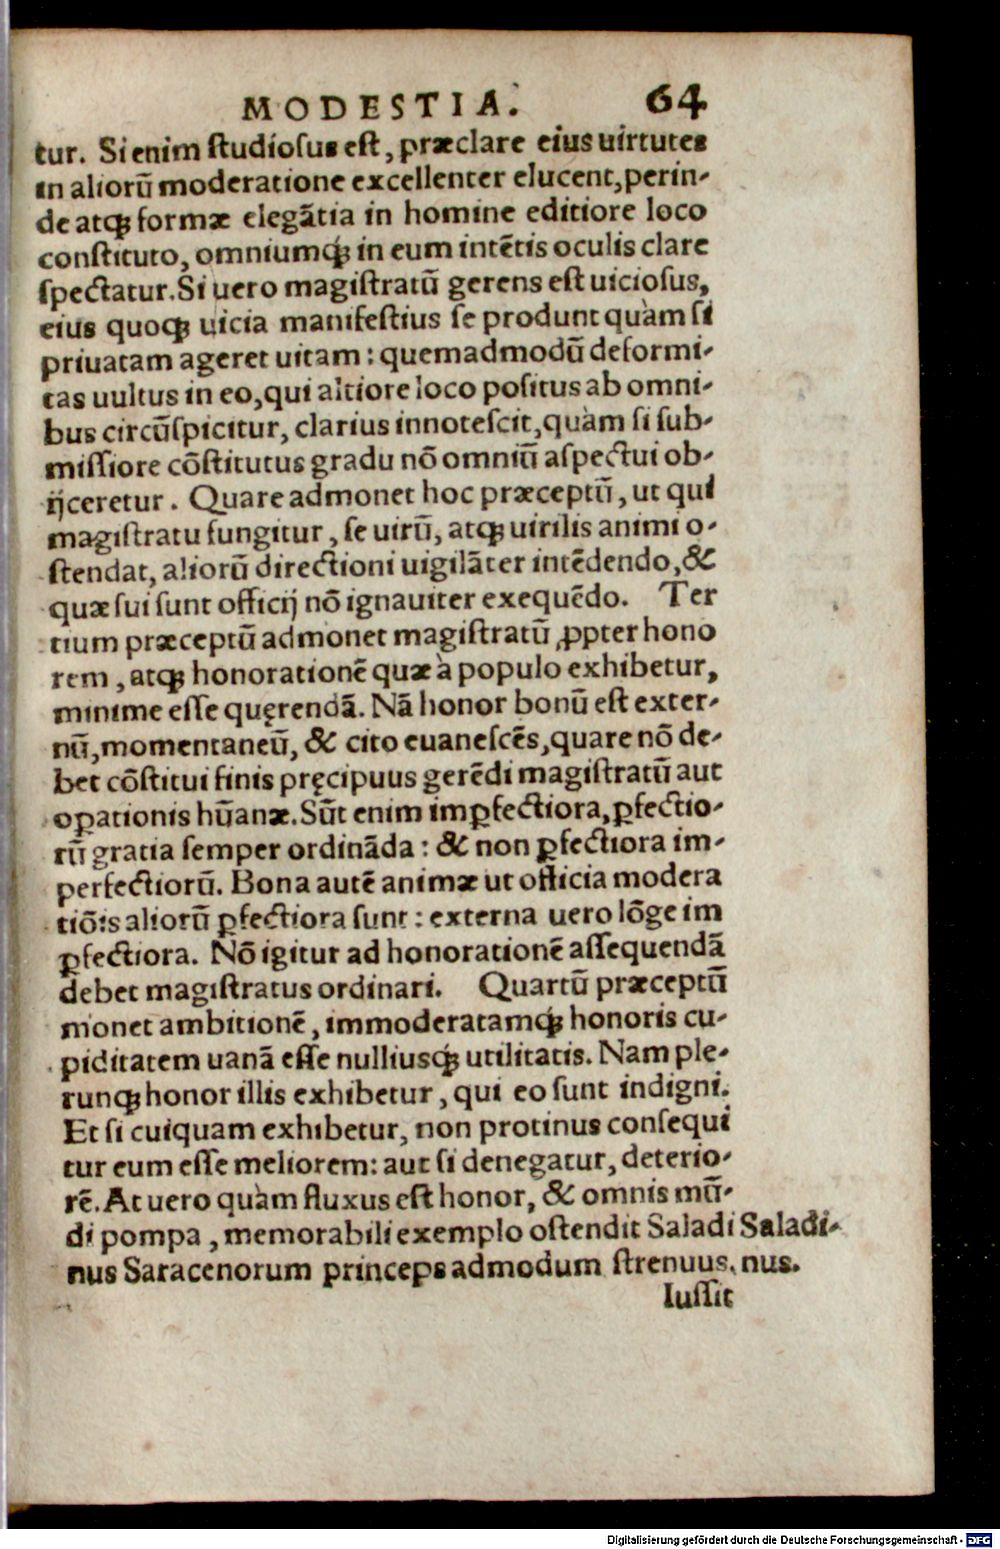 MODESTIA. 64
tur. Si enim ſtudioſus eſt, præclare eius uirtutes
in aliorũ moderatione excellenter elucent, perin-
de atq; formæ elegãtia in homine editiore loco
conſtituto, omniumq; in eum intẽtis oculis clare
ſpectatur. Si uero magiſtratũ gerens eſt uicioſus,
eius quoq; uicia manifeſtius ſe produnt quàm ſi
priuatam ageret uitam: quemadmodũ deformi-
tas uultus in eo, qui altiore loco poſitus ab omni-
bus circũſpicitur, clarius innoteſcit, quàm ſi ſub-
miſſiore cõſtitutus gradu nõ omniũ aſpectui ob-
ijceretur. Quare admonet hoc præceptũ, ut qui
magiſtratu fungitur, ſe uirũ, atq; uirilis animi o-
ſtendat, aliorũ directioni uigilãter intẽdendo, &
quæ ſui ſunt officij nõ ignauiter exequẽdo. Ter
tium præceptũ admonet magiſtratũ ꝓpter hono
rem, atq; honorationẽ quæ à populo exhibetur,
minime eſſe quęrendã. Nã honor bonũ eſt exter-
nũ, momentaneũ, & cito euaneſcẽs, quare nõ de-
bet cõſtitui finis pręcipuus gerẽdi magiſtratũ aut
oꝑationis hũanæ. Sũt enim imꝑfectiora, ꝑfectio-
rũ gratia ſemper ordinãda: & non ꝑfectiora im-
perfectiorũ. Bona autẽ animæ ut officia modera
tiõis aliorũ ꝑfectiora ſunt: externa uero lõge im
ꝑfectiora. Nõ igitur ad honorationẽ aſſequendã
debet magiſtratus ordinari. Quartũ præceptũ
monet ambitionẽ, immoderatamq; honoris cu-
piditatem uanã eſſe nulliusq; utilitatis. Nam ple-
runq; honor illis exhibetur, qui eo ſunt indigni.
Et ſi cuiquam exhibetur, non protinus conſequi
tur eum eſſe meliorem: aut ſi denegatur, deterio-
rẽ. At uero quàm fluxus eſt honor, & omnis mũ-
di pompa, memorabili exemplo oſtendit Saladi Saladi-
nus Saracenorum princeps admodum ſtrenuus. nus.
Iuſſit
Digitalisierung gefördert durch die Deutsche Forschungsgemeinschaft - DFG